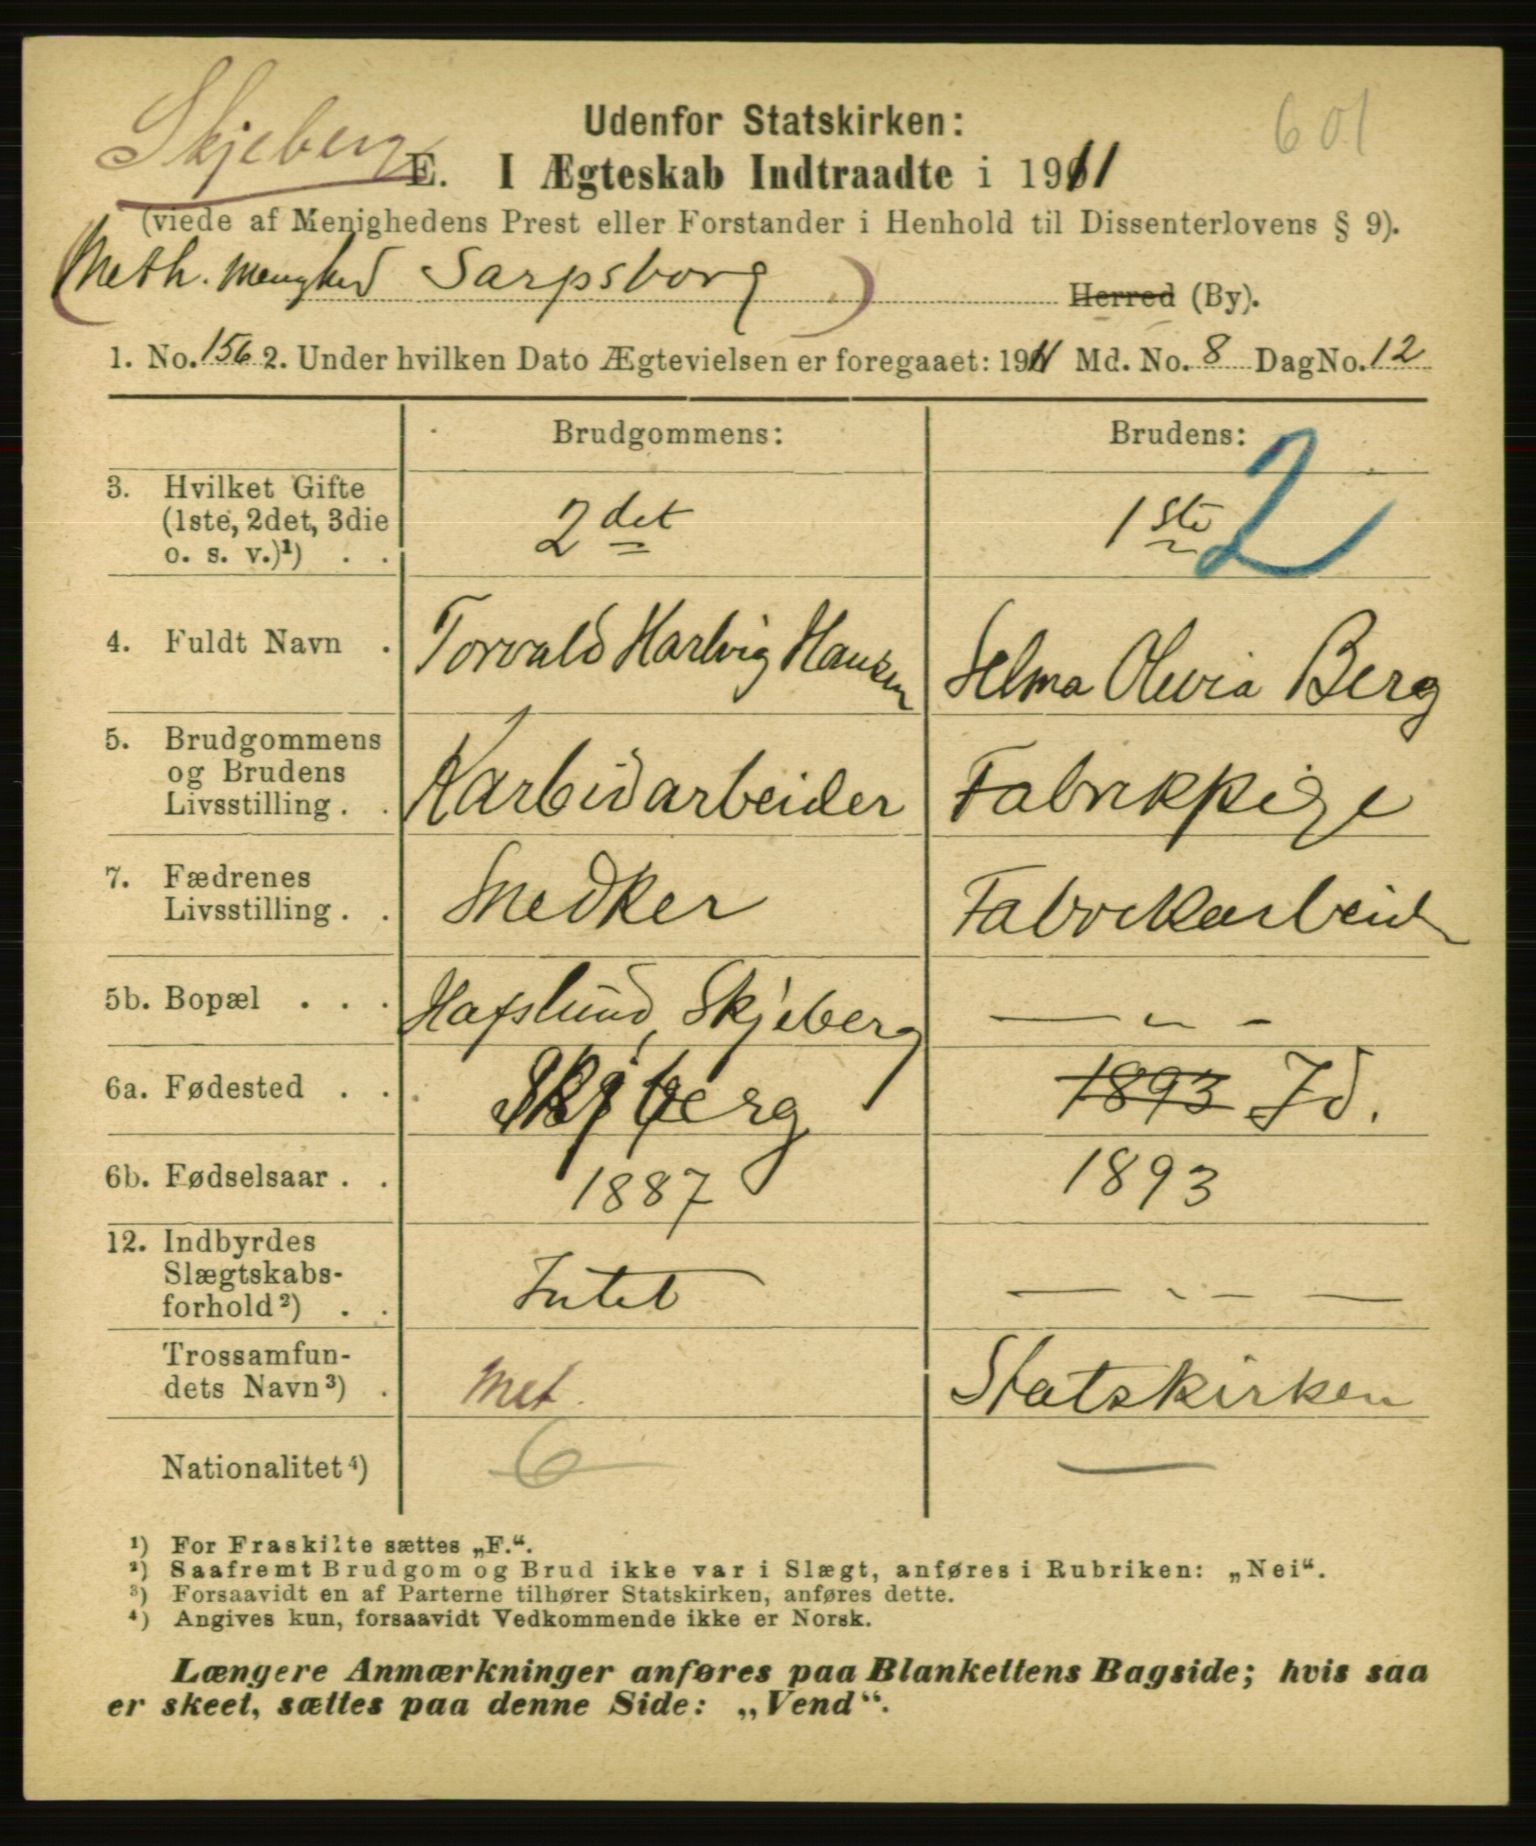 Skjeberg
601
Udenfor Statskirken:
E. I Ægteskab Indtraadte i 1911
(viede af Menighedens Prest eller Forstander i Henhold til Dissenterlovens § 9).
(Meth. Menighed Sarpsborg) Herred (By).
1. No. 156 2. Under hvilken Dato Ægtevielsen er foregaaet: 1911 Md. No. 8 Dag No. 12
Brudgommens: Brudens:
3. Hvilket Gifte (1ste, 2det, 3die o. s. v.)¹) . . 2det 1ste 2
4. Fuldt Navn . Torvald Hartvig Hansen Selma Olivia Berg
5. Brudgommens og Brudens Livsstilling . . Karbidarbeider Fabrikkpige
7. Fædrenes Livsstilling . . Snedker Fabrikarbeider
5b. Bopæl . . . Hafslund, Skjeberg — „ –
6a. Fødested . . Skjeberg 1893 Id.
6b. Fødselsaar . . 1887 1893
12. Indbyrdes Slægtskabs-
forhold²) . . Intet — „ – —
Trossamfun-
dets Navn³) . Met. Statskirken
Nationalitet⁴) 6 —
¹) For Fraskilte sættes „F.“.
²) Saafremt Brudgom og Brud ikke var i Slægt, anføres i Rubriken: „Nei“.
³) Forsaavidt en af Parterne tilhører Statskirken, anføres dette.
⁴) Angives kun, forsaavidt Vedkommende ikke er Norsk.
Længere Anmærkninger anføres paa Blankettens Bagside; hvis saa
er skeet, sættes paa denne Side: „Vend“.